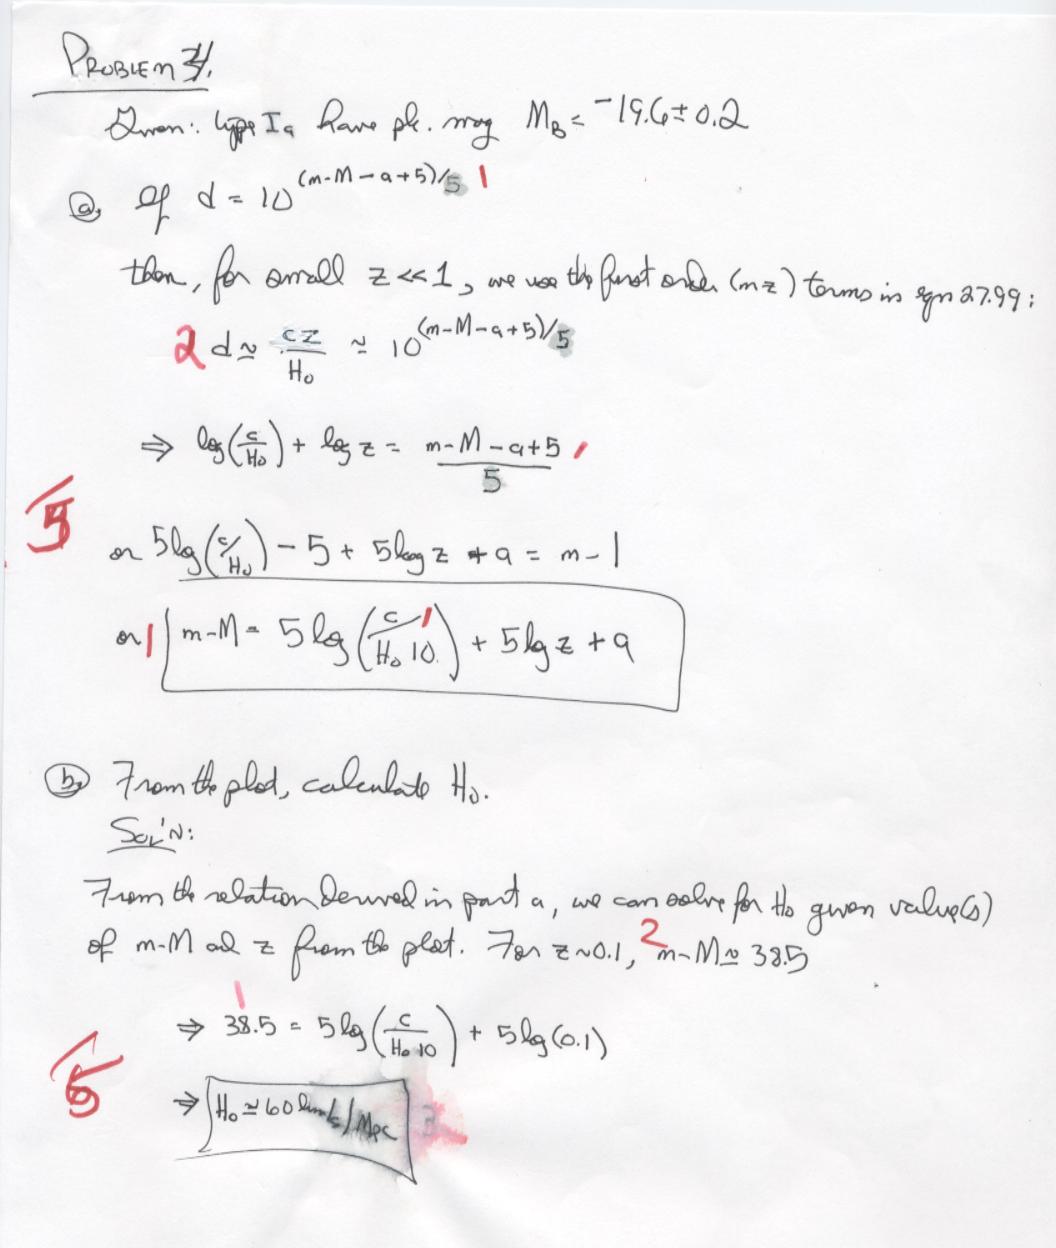 PROBLEM 4.
Given: type Ia have pk. mag M_B = -19.6 ± 0.2
a. If d = 10^(m-M-a+5)/5 1
then, for small z << 1, we use the first order (in z) terms in eqn 27.99:
2 d ≃ cz/H₀ ≃ 10^(m-M-a+5)/5
⇒ log(c/H₀) + log z = (m-M-a+5)/5 1
5
or 5log(c/H₀) - 5 + 5log z + a = m-M
or 1 m-M = 5 log(c/H₀ 10) 1 + 5 log z + a
b. From the plot, calculate H₀.
SOL'N:
From the relation derived in part a, we can solve for H₀ given value(s)
of m-M and z from the plot. For z ~ 0.1, 2 m-M ≃ 38.5
1
⇒ 38.5 = 5 log(c/H₀ 10) + 5 log(0.1)
6
⇒ H₀ ≃ 60 km/s/Mpc 3